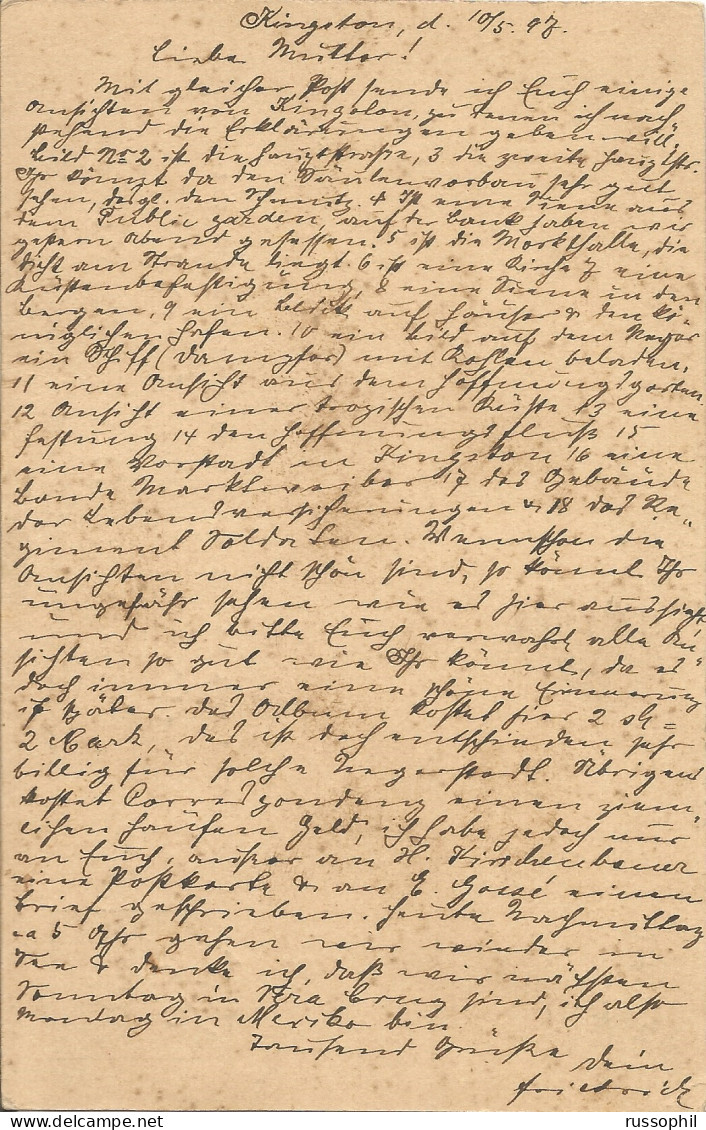 Kingston, d. 10/5. 97.
Liebe Mutter!
Mit gleicher Post sende ich Euch einige
Ansichten von Kingston, zu denen ich nach"
stehend die Erklärungen geben will,
Bild No 2 ist die Hauptstraße, 3 die zweite Hauptstr.
Ihr könnt da den Säulenvorbau sehr gut
sehen, desgl. den Schmutz. 4 Ist eine Scene aus
dem Public garden, auf der Bank haben wir
gestern Abend gesessen. 5 ist die Markthalle, die
dicht am Strande liegt. 6 ist eine Kirche 7 eine
Küstenbefestigung, 8 eine Scene in den
Bergen, 9 ein Blick auf Häuser & den Kö"
niglichen Hafen. 10 ein Bild auf dem Neger
ein Schiff (Dampfer) mit Kohlen beladen,
11 eine Ansicht aus dem Hoffnungsgarten
12 Ansicht einer tropischen Küste 13 eine
Festung 14 den Hoffnungsfluß 15
eine Vorstadt in Kingston 16 eine
Bande Marktweiber 17 das Gebäude
der Lebensversicherungen & 18 das Re"
giment Soldaten. Wennschon die
Ansichten nicht schön sind, so könnt Ihr
ungefähr sehen wie es hier aussieht
und ich bitte Euch verwahrt alle An"
sichten so gut wie Ihr könnt, da es
doch immer eine schöne Erinnerung
ist später. Das Album kostet hier 2 sh =
2 Mark, das ist doch entschieden sehr
billig für solche Negerstadt. Übrigens
kostet Correspondenz einen ziem"
lichen Haufen Geld, ich habe jedoch nur
an Euch, außer an H. Kirschenbauer
eine Postkarte & an E. Gossé einen
Brief geschrieben. Heute Nachmittag
ca 5 Uhr gehen wir wieder in
See & denke ich, daß wir nächsten
Sonntag in Vera Cruz sind, ich also
Montag in Mexiko bin.
Tausend Grüße Dein
Friedrich
www.russophil